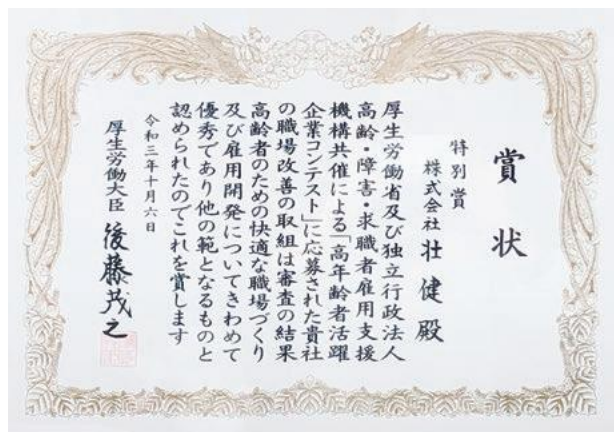 賞状
特別賞
株式会社 壮健 殿
厚生労働省及び独立行政法人
高齢・障害・求職者雇用支援
機構共催による「高年齢者活躍
企業コンテスト」に応募された貴社
の職場改善の取組は審査の結果
高齢者のための快適な職場づくり
及び雇用開発についてきわめて
優秀であり他の範となるものと
認められたのでこれを賞します
令和三年十月六日
厚生労働大臣 後藤茂之